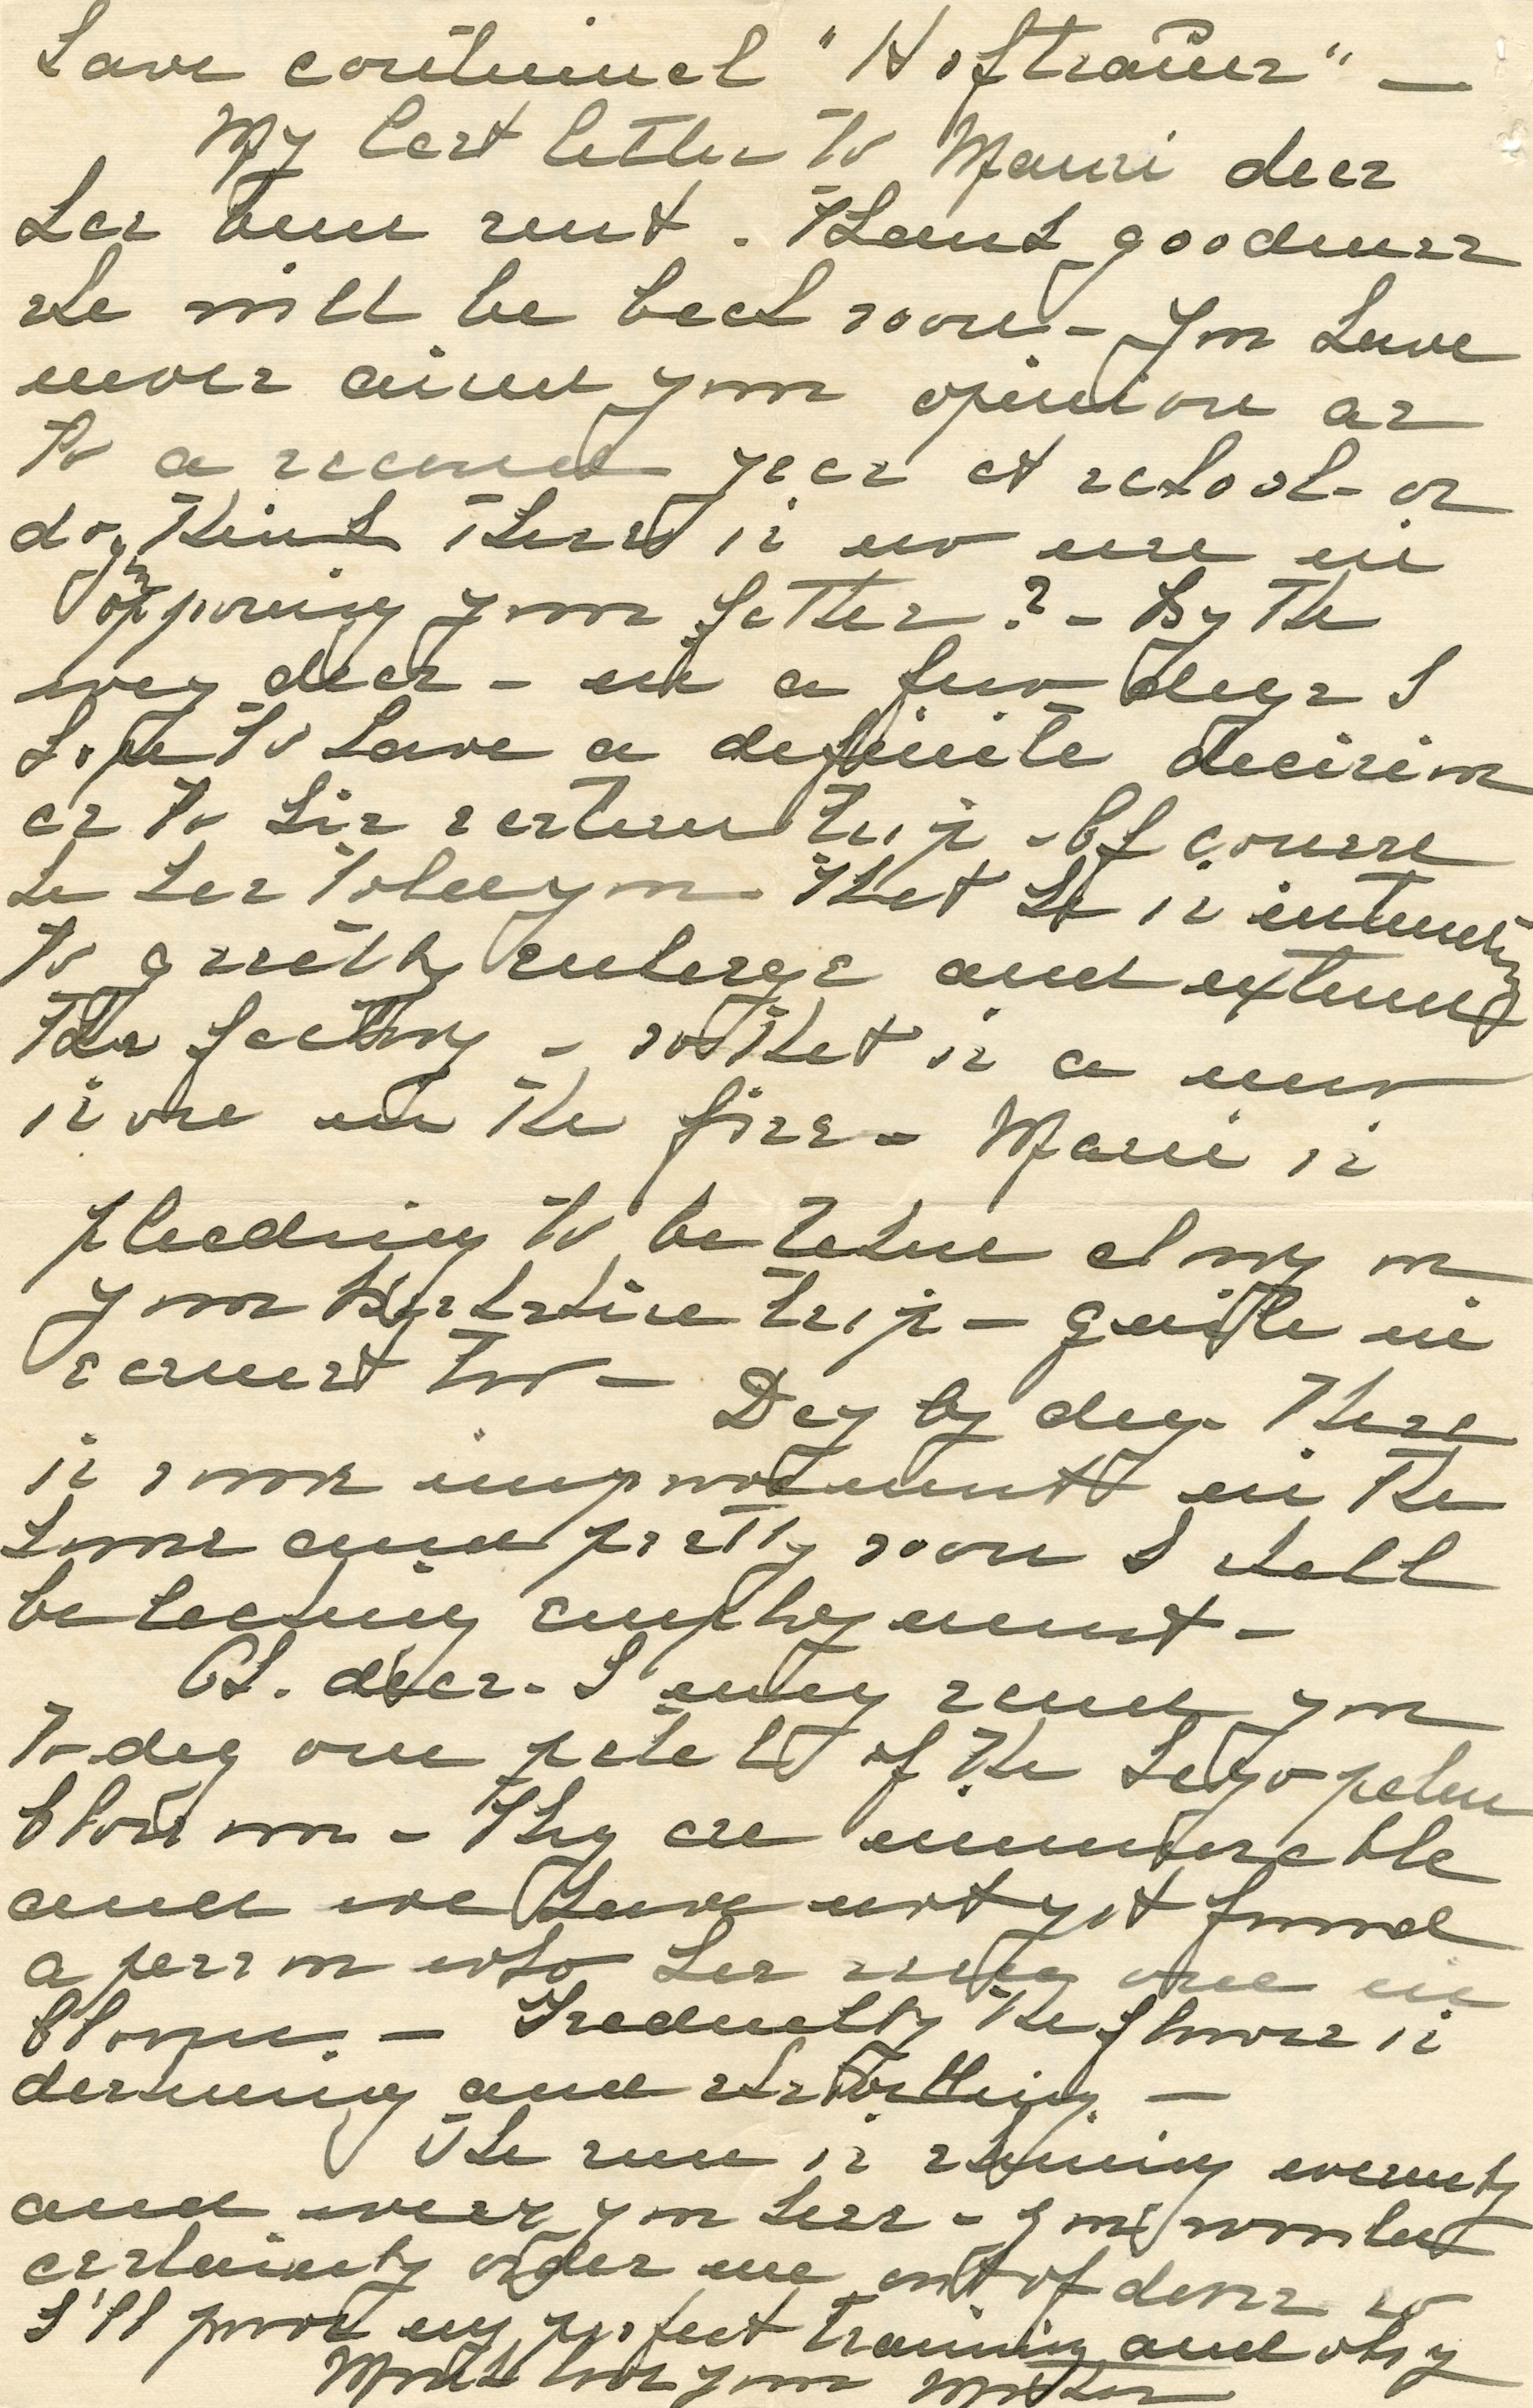 have continued "Hoftrauer" —
My last letter to Mami dear
has been sent. Thank goodness
she will be back soon – You have
never aired your opinion as
to a second year at school – or
do you think there is no use in
opposing your father? – By the
way dear – in a few days I
hope to have a definite decision
as to his return trip – Of course
he has told you that he is intending
to greatly enlarge and extend
the factory – so that is a new
iron in the fire – Mami is
pleading to be taken along on
your Berkshire trip – quite in
earnest too – Day by day there
is some improvement in the
house and pretty soon I shall
be lacking employment –
Oh. dear – I may send you
today one petal of the Sago palm
blossom – They are innumerable
and we have not yet found
a person who has seen one in
bloom. – Gradually the flower is
darkening and
The sun is shining evenly
and were you here – you would
certainly order me out of doors so
I'll prove my perfect training and obey
Much love your Mother